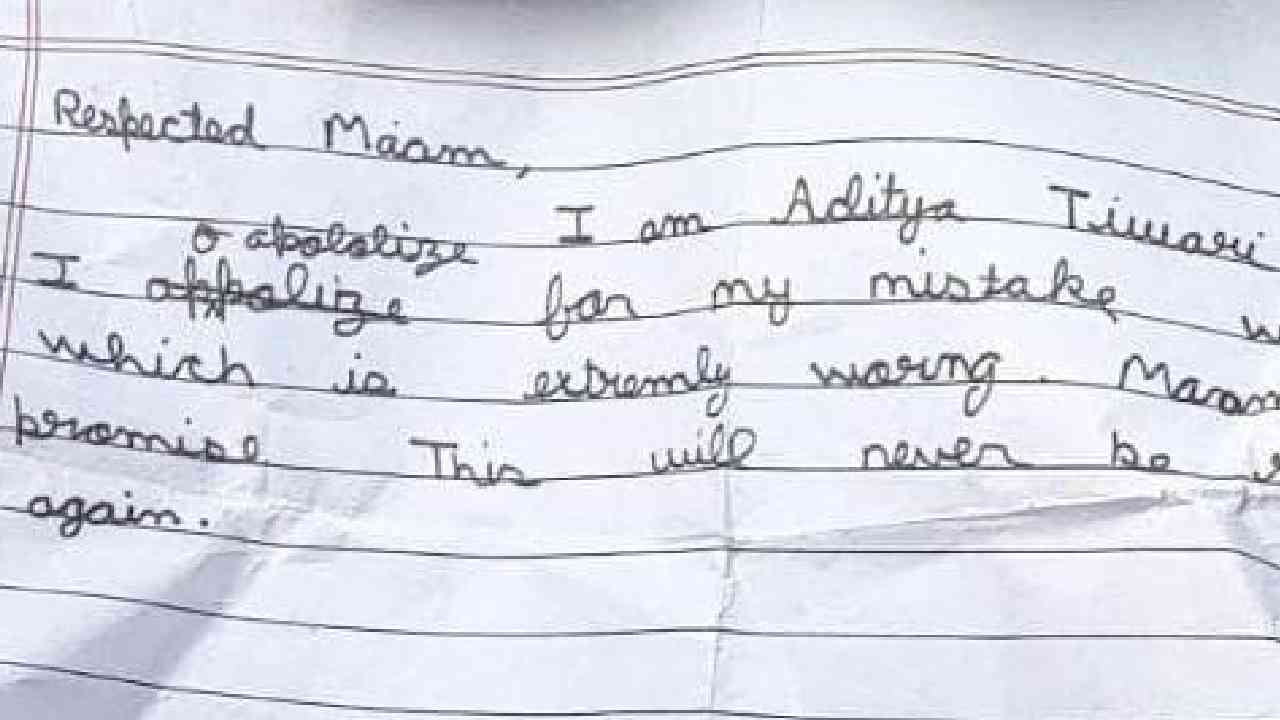 Respected Máam,
I am Aditya Tiwari
apololize
I appalize for my mistake
which is extremly worng. Maam
promise This will never be
again.